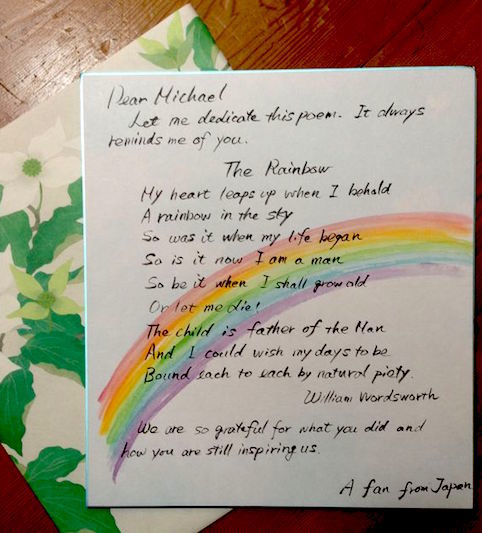 Dear Michael
Let me dedicate this poem. It always
reminds me of you.
The Rainbow
My heart leaps up when I behold
A rainbow in the sky
So was it when my life began
So is it now I am a man
So be it when I shall grow old
Or let me die!
The child is father of the Man
And I could wish my days to be
Bound each to each by natural piety.
William Wordsworth
We are so grateful for what you did and
how you are still inspiring us.
A fan from Japan